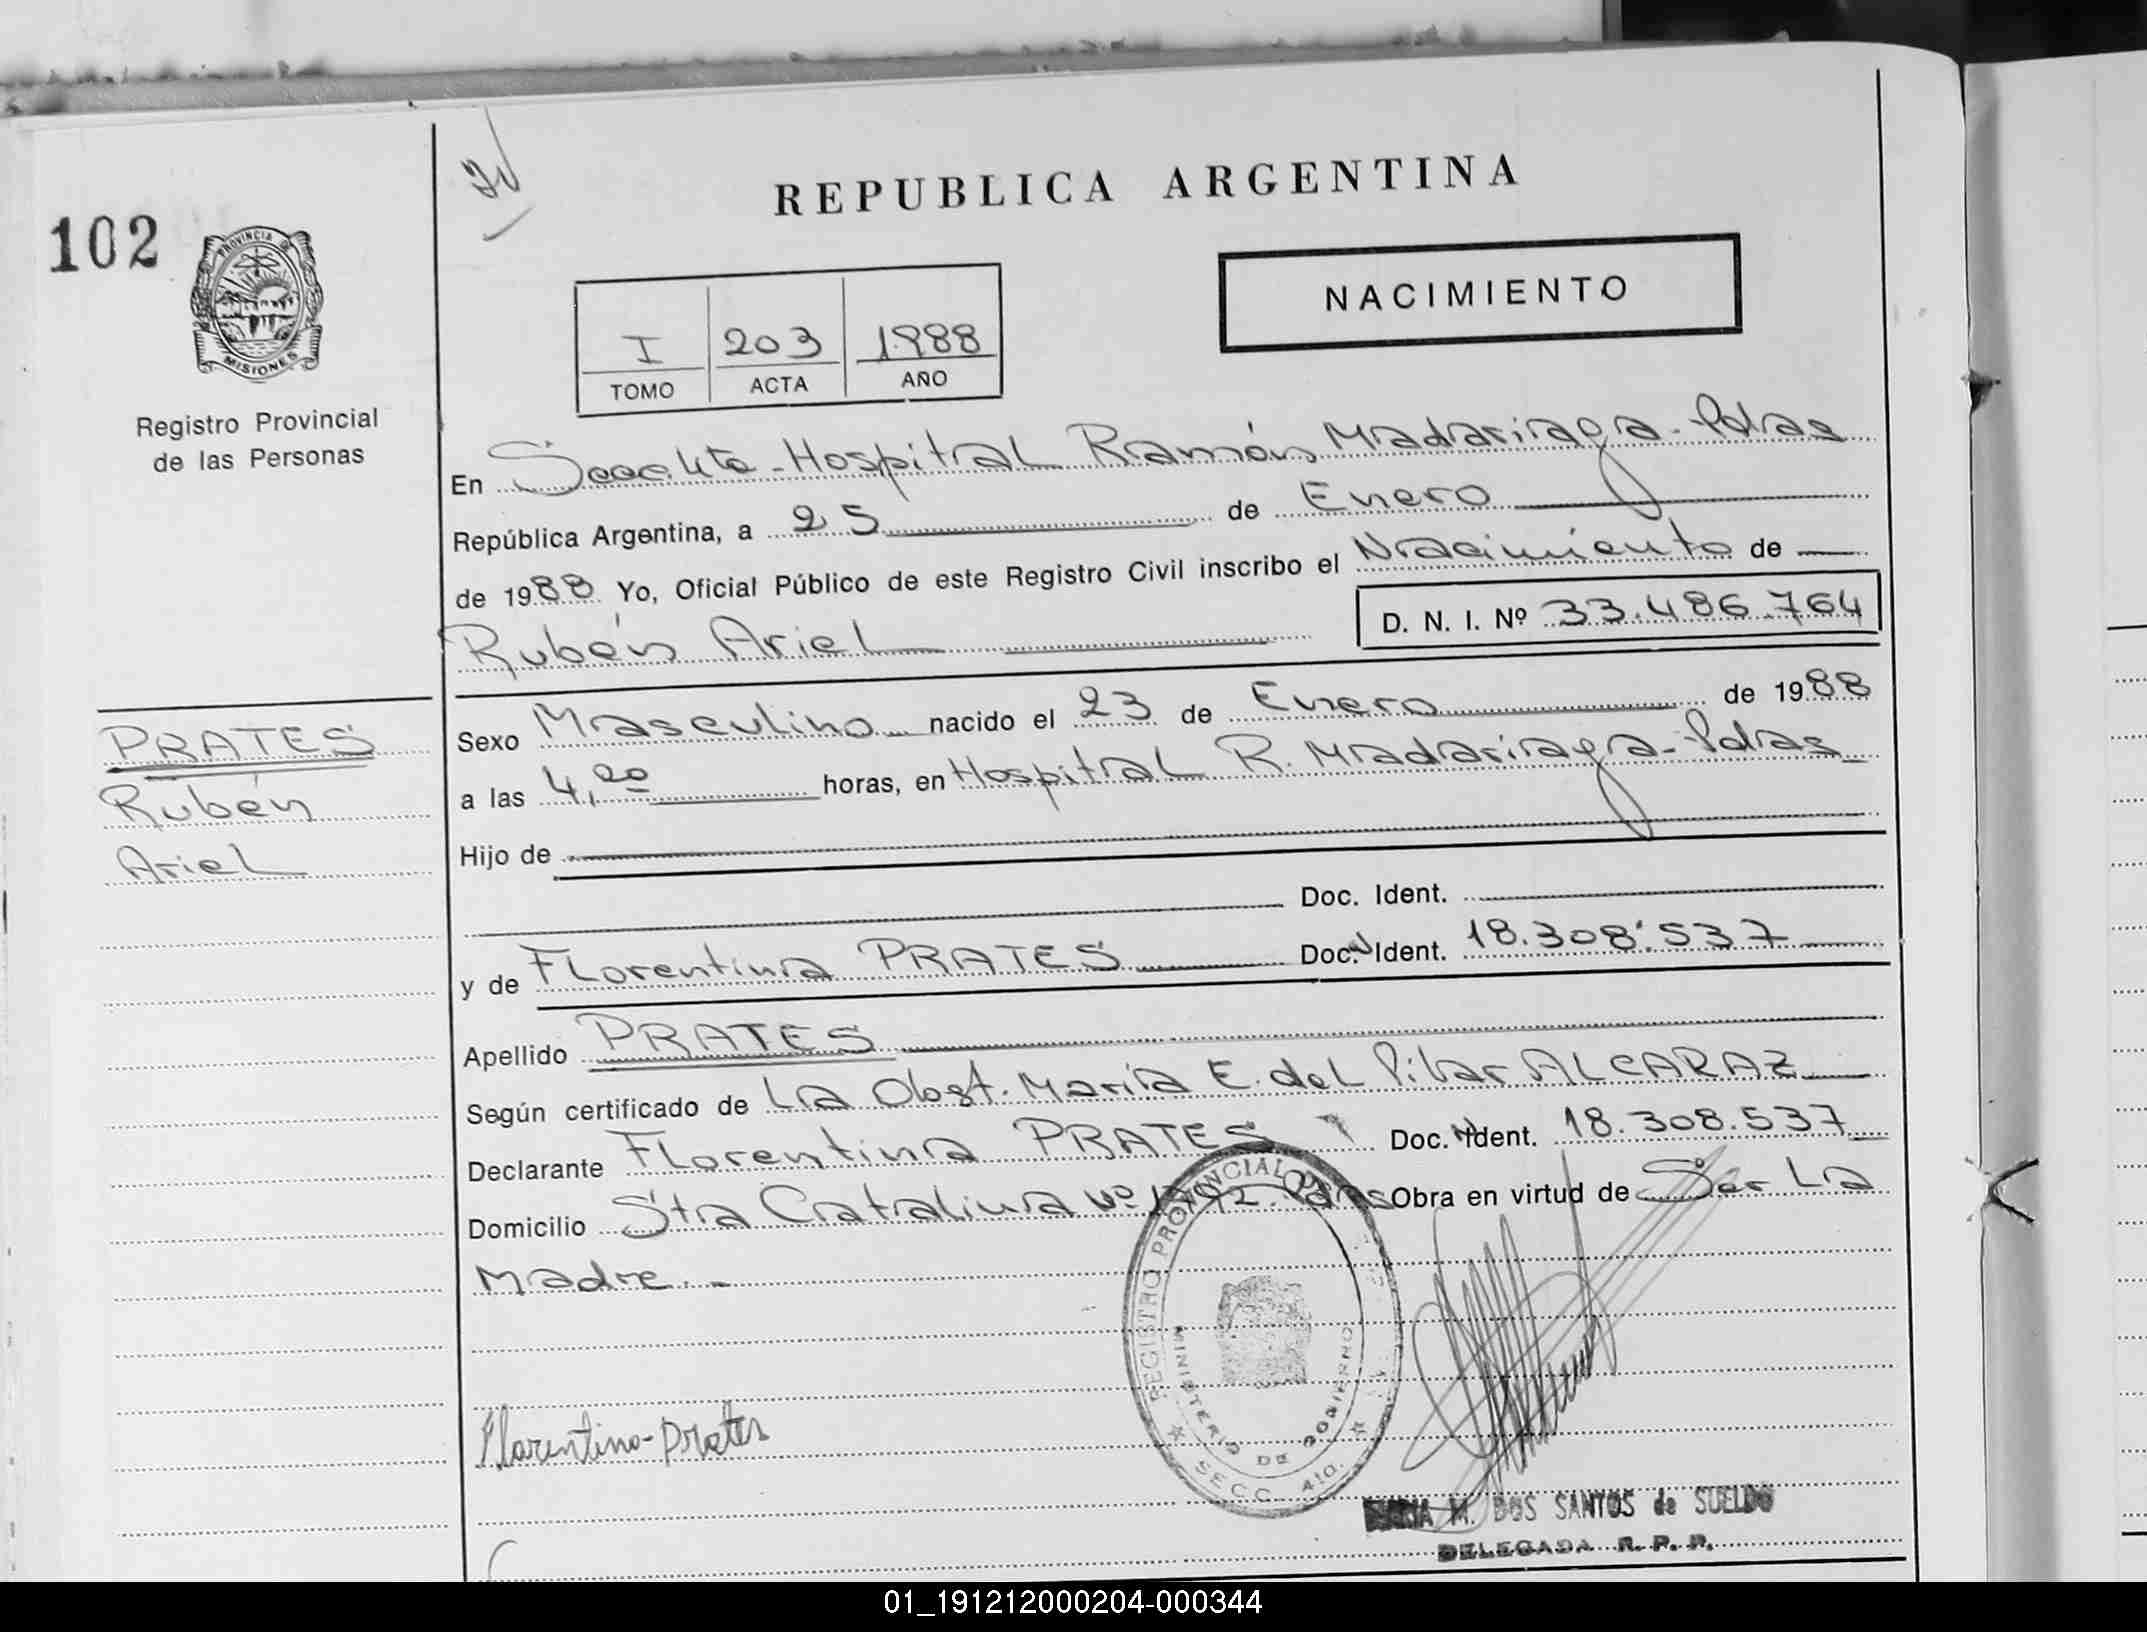 REPUBLICA ARGENTINA
102
PROVINCIA DE
MISIONES
NACIMIENTO
I 203 1988
TOMO ACTA AÑO
Registro Provincial
de las Personas
En Secc. 4ta - Hospital Ramón Madariaga - Pdas
República Argentina, a 25 de Enero
de 1988 Yo, Oficial Público de este Registro Civil inscribo el Nacimiento de
Rubén Ariel D. N. I. Nº 33.486.764
PRATES
Rubén
Ariel
Sexo Masculino nacido el 23 de Enero de 1988
a las 4,20 horas, en Hospital R. Madariaga - Pdas
Hijo de
Doc. Ident.
y de Florentina PRATES Doc. Ident. 18.308.537
Apellido PRATES
Según certificado de La Obst. María E. del Pilar ALCARAZ
Declarante Florentina PRATES Doc. Ident. 18.308.537
Domicilio Sta Catalina Nº Pdas Obra en virtud de Ser La
Madre. -
REGISTRO PROVINCIAL
MINISTERIO DE GOBIERNO
SECC. 4ta.
Florentino - Prates
MARIA M. DOS SANTOS de SUELDO
DELEGADA R. P. P.
01_191212000204-000344